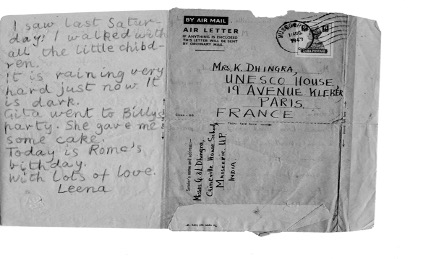 I saw last Satur-
day. I walked with
all the little child-
ren.
It is raining very
hard just now It
is dark.
Gita went to Billy's
party. She gave me
some cake.
Today is Roma's
birthday.
With lots of love.
Leena
BY AIR MAIL
AIR LETTER
IF ANYTHING IS ENCLOSED
THIS LETTER WILL BE SENT
BY ORDINARY MAIL.
MRS. K. DHINGRA,
UNESCO HOUSE
19 AVENUE KLEBER
PARIS
FRANCE
Sender's name and address:—
Misses G. & L. Dhingra,
Home School
Mussoorie, U.P.
INDIA